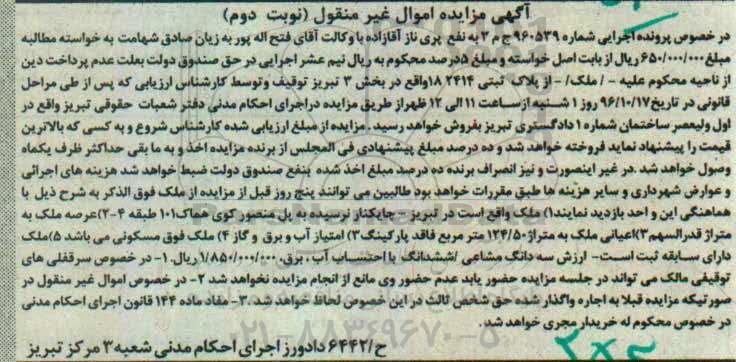 آگهی مزایده اموال غیر منقول (نوبت دوم)
در خصوص پرونده اجرایی شماره ۹۶۰۵۳۹ ج م ۳ به نفع پری ناز آقازاده با وکالت آقای فتح اله پور به زیان صادق شهامت به خواسته مطالبه
مبلغ ۶۵۰/۰۰۰/۰۰۰ ریال از بابت اصل خواسته و مبلغ ۵درصد محکوم به ریال نیم عشر اجرایی در حق صندوق دولت بعلت عدم پرداخت دین
از ناحیه محکوم علیه - / ملک/ - از پلاک ثبتی ۲۴۱۴ ۱۸واقع در بخش ۳ تبریز توقیف وتوسط کارشناس ارزیابی که پس از طی مراحل
قانونی در تاریخ ۹۶/۱۰/۱۷ روز ۱ شنبه ازساعت ۱۱الی ۱۲ ظهراز طریق مزایده دراجرای احکام مدنی دفتر شعبات حقوقی تبریز واقع در
اول ولیعصر ساختمان شماره ۱دادگستری تبریز بفروش خواهد رسید. مزایده از مبلغ ارزیابی شده کارشناس شروع و به کسی که بالاترین
قیمت را پیشنهاد نماید فروخته خواهد شد و ده درصد مبلغ پیشنهادی فی المجلس از برنده مزایده اخذ و به ما بقی حداکثر ظرف یکماه
وصول خواهد شد. در غیر اینصورت و نیز انصراف برنده ده درصد مبلغ اخذ شده بنفع صندوق دولت ضبط خواهد شد هزینه های اجرائی
و عوارض شهرداری و سایر هزینه ها طبق مقررات خواهد بود طالبین می توانند پنج روز قبل از مزایده از ملک فوق الذکر به شرح ذیل با
هماهنگی این و احد بازدید نمایند۱) ملک واقع است در تبریز - چایکنار نرسیده به پل منصور کوی هماک۱۰۱ طبقه ۴-۲)عرصه ملک به
متراژ قدرالسهم ۳)اعیانی ملک به متراژ۱۲۴/۵۰ متر مربع فاقد پارکینگ۳) امتیاز آب و برق و گاز ۴) ملک فوق مسکونی می باشد ۵)ملک
دارای سابقه ثبت است- ارزش سه دانگ مشاعی /ششدانگ با احتساب آب، برق، ۱/۸۵۰/۰۰۰/۰۰۰ ریال. ۱- در خصوص سرقفلی های
توقیفی مالک می تواند در جلسه مزایده حضور یابد عدم حضور وی مانع از انجام مزایده نخواهد شد ۲- در خصوص اموال غیر منقول در
صورتیکه مزایده قبلا به اجاره واگذار شده حق شخص ثالث در این خصوص لحاظ خواهد شد. ۳- مفاد ماده ۱۴۴ قانون اجرای احکام مدنی
در خصوص محکوم له خریدار مجری خواهد شد.
ح/۶۴۴۲ دادورز اجرای احکام مدنی شعبه۳ مرکز تبریز
۰۲۱-۸۸۳۴۹۶۷۰-۵